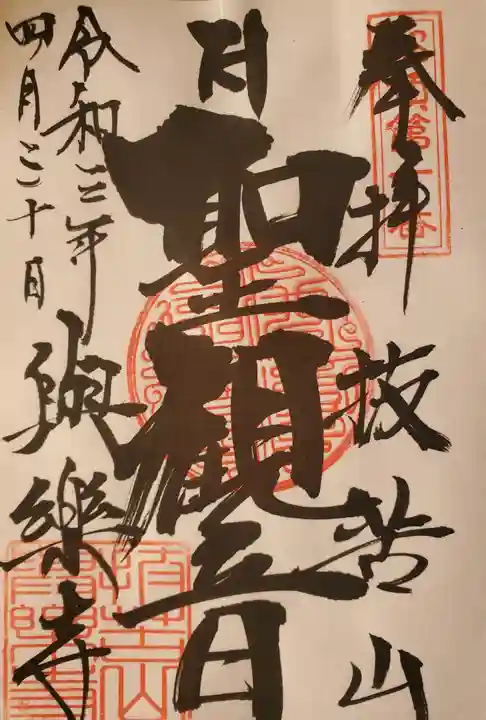 奉拝 抜苦山
聖観音
令和三年
四月二十日
與樂寺